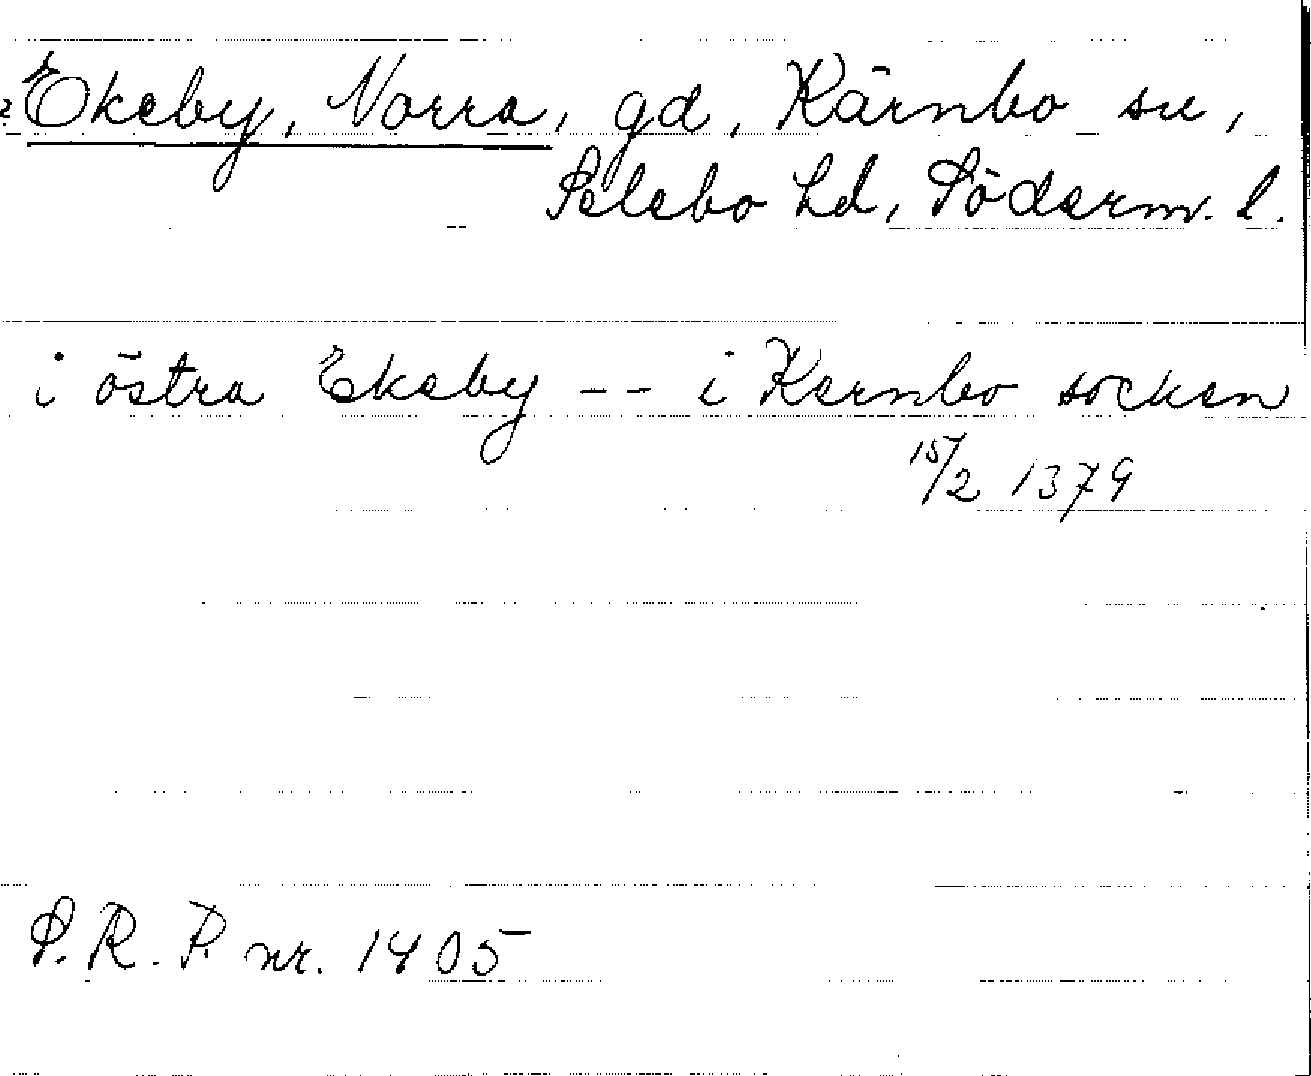 ? Ekeby, Norra, gd, Kärnbo sn,
Selebo hd, Söderm. l.
i östra Ekeby -- i Kernbo socken
15/2 1379
S.R.P. nr. 1405